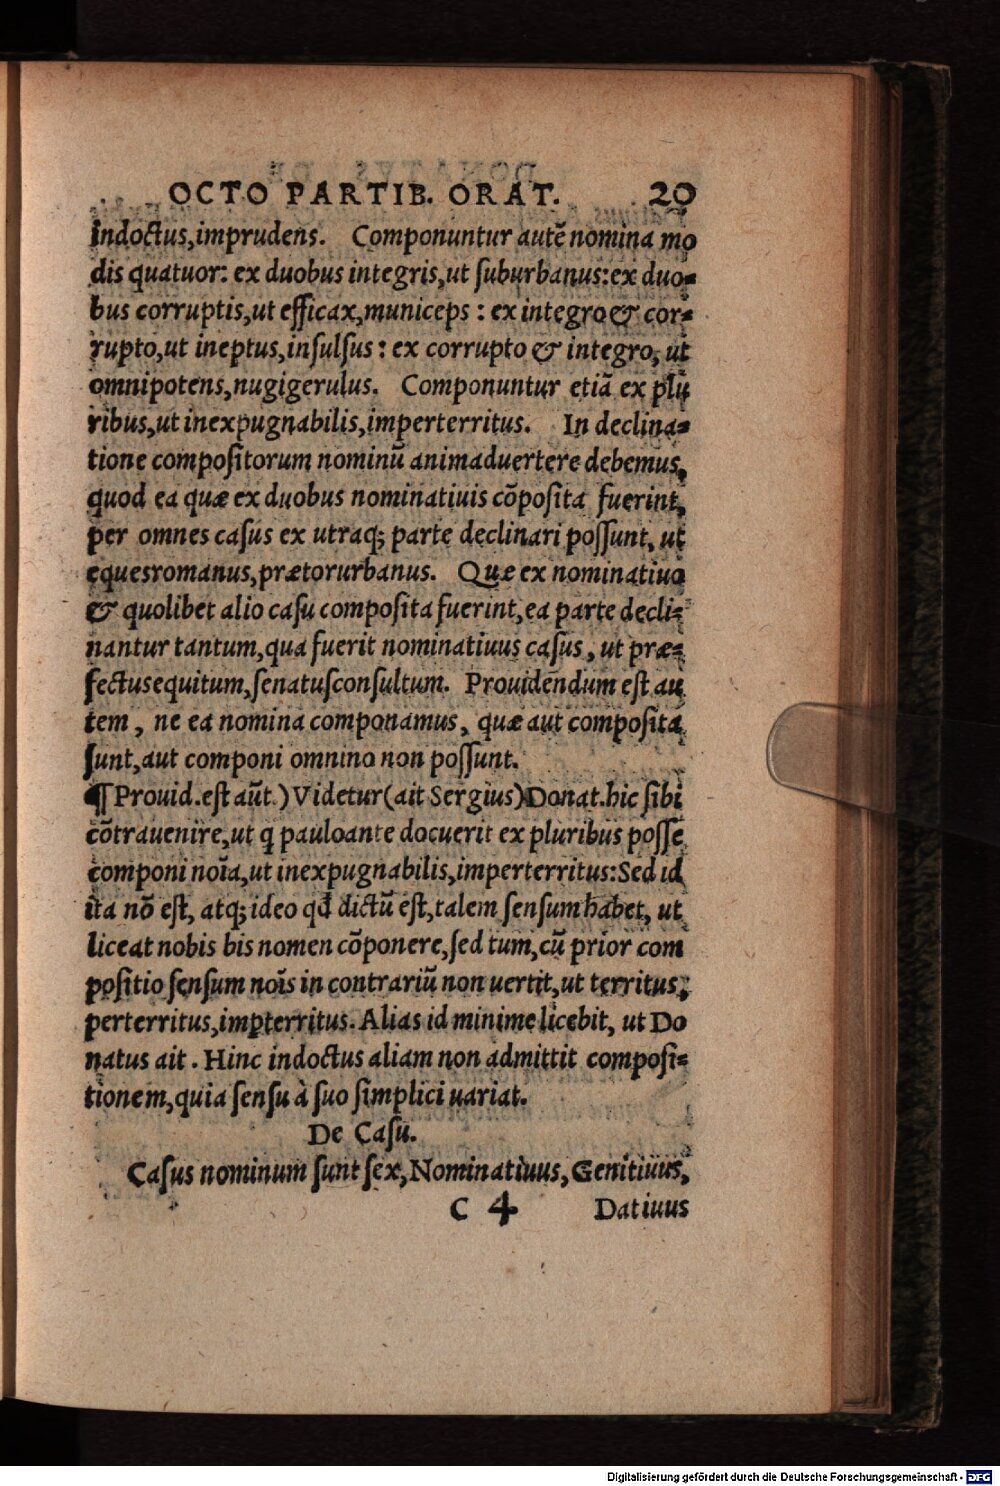 OCTO PARTIB. ORAT. 20
indoctus, imprudens. Componuntur autē nomina mo
dis quatuor: ex duobus integris, ut ſuburbanus: ex duo-
bus corruptis, ut efficax, municeps : ex integro & cor-
rupto, ut ineptus, inſulſus : ex corrupto & integro, ut
omnipotens, nugigerulus. Componuntur etiā ex plu
ribus, ut inexpugnabilis, imperterritus. In declina-
tione compoſitorum nominū animaduertere debemus,
quod ea quæ ex duobus nominatiuis cōpoſita fuerint,
per omnes caſus ex utraq; parte declinari poſſunt, ut
equesromanus, prætorurbanus. Quæ ex nominatiuo
& quolibet alio caſu compoſita fuerint, ea parte decli-
nantur tantum, qua fuerit nominatiuus caſus, ut præ-
fectusequitum, ſenatuſconſultum. Prouidendum eſt au
tem, ne ea nomina componamus, quæ aut compoſita
ſunt, aut componi omnino non poſſunt.
¶ Prouid. eſt aūt.) Videtur (ait Sergius) Donat. hic ſibi
cōtrauenire, ut q pauloante docuerit ex pluribus poſſe
componi noīa, ut inexpugnabilis, imperterritus: Sed id
ita nō eſt, atq; ideo qđ dictū eſt, talem ſenſum habet, ut
liceat nobis bis nomen cōponere, ſed tum, cū prior com
poſitio ſenſum noīs in contrariū non uertit, ut territus,
perterritus, imꝑterritus. Alias id minime licebit, ut Do
natus ait. Hinc indoctus aliam non admittit compoſi-
tionem, quia ſenſu à ſuo ſimplici uariat.
De Caſu.
Caſus nominum ſunt ſex, Nominatiuus, Genitiuus,
C 4 Datiuus
Digitalisierung gefördert durch die Deutsche Forschungsgemeinschaft - DFG